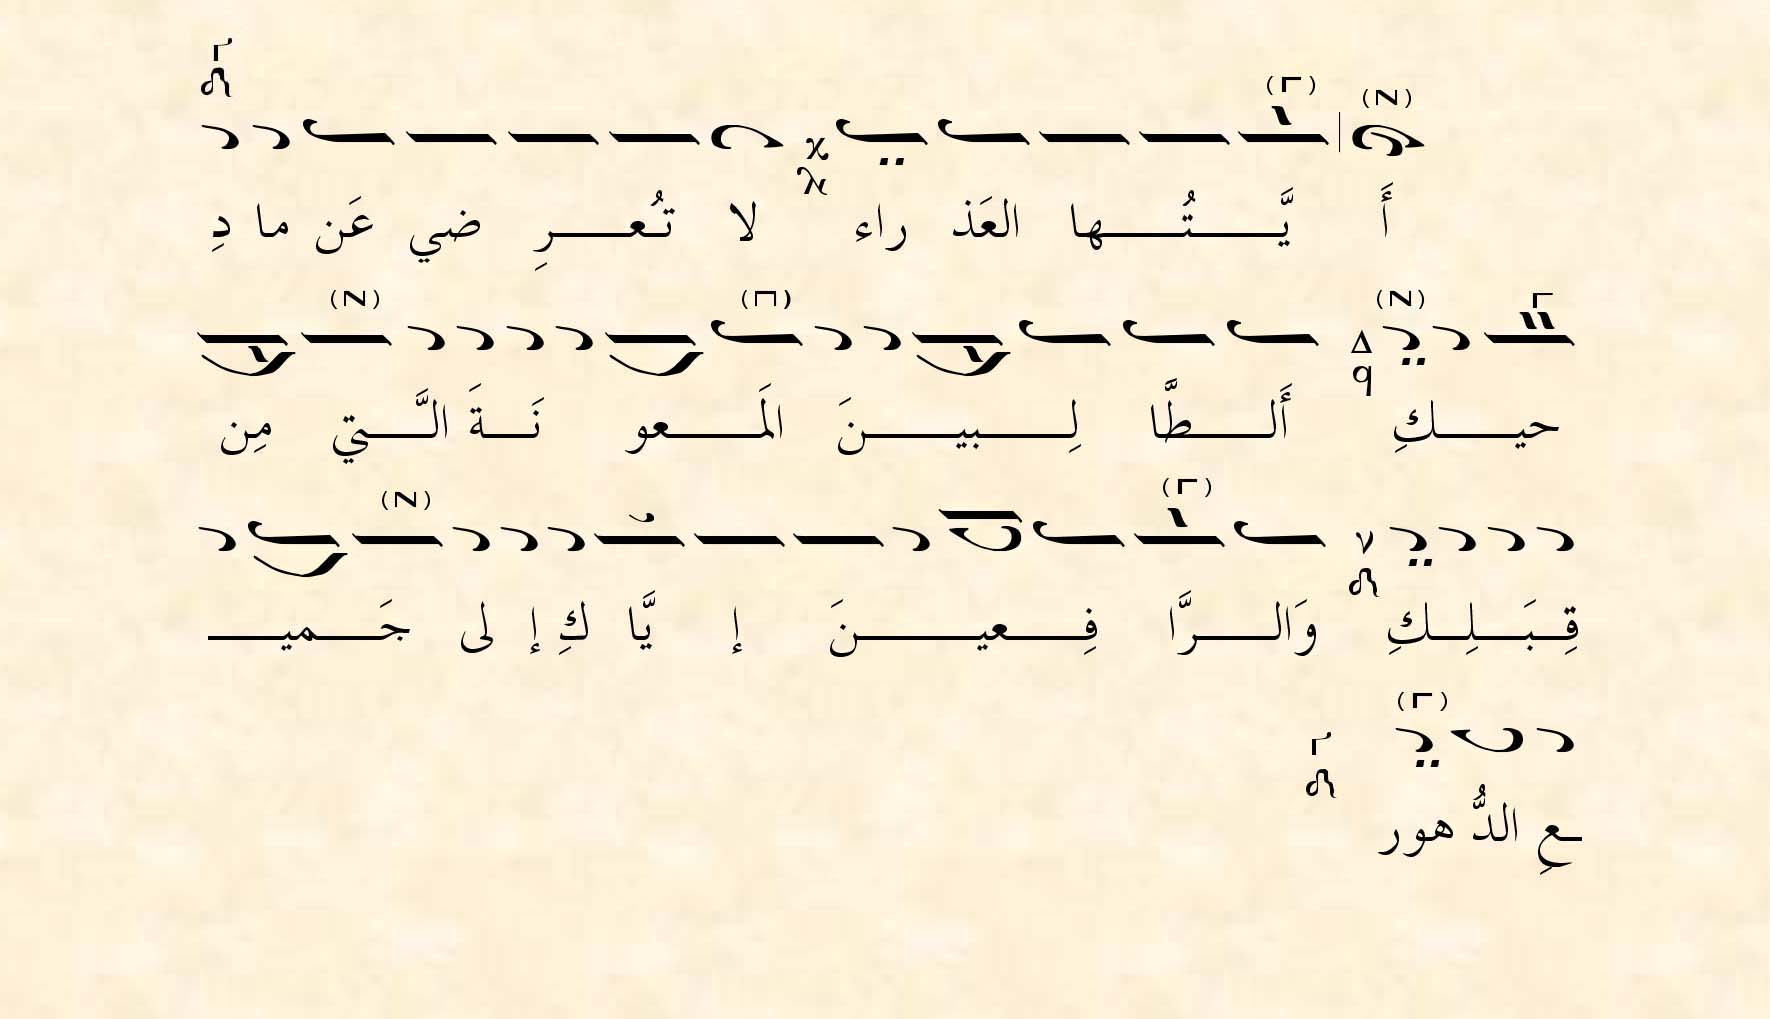 أَ يَّـــتُـــها العَذ راء لا تُعـــرِ ضي عَن ما دِ
حيـــكِ أَلـــطَّا لِـــبيـــنَ المَـــعو نَـــةَ الَّـــتي مِن
قِـــبَـــلِـــكِ وَالـــرَّا فِـــعيـــنَ إ يَّا كِ إ لى جَـــميـــ
ـعِ الدُّ هور